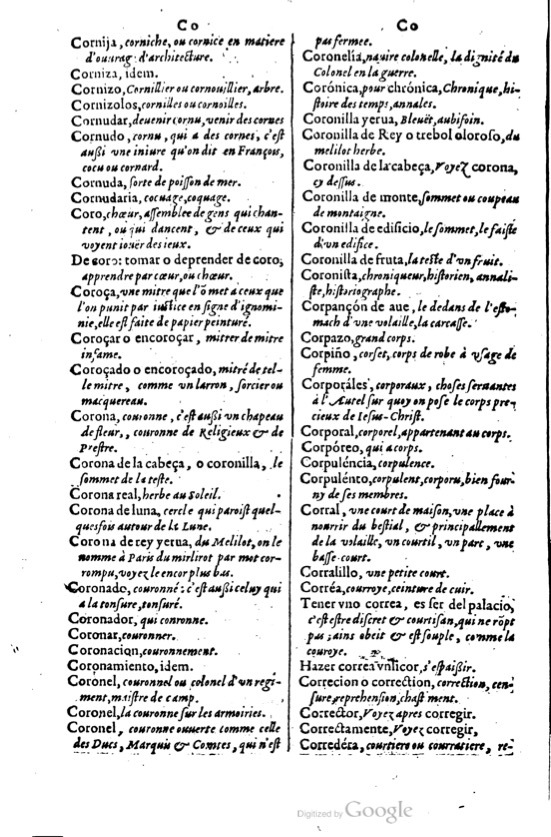 Co
Cornija, corniche, ou cornice en matiere
d'ouurag. d'architecture.
Corniza, idem.
Cornizo, Cornillier ou cornouillier, arbre.
Cornizolos, cornilles ou cornoilles.
Cornudar, deuenir cornu, venir des cornes
Cornudo, cornu, qui a des cornes, c'est
außi vne iniure qu'on dit en François,
cocu ou cornard.
Cornuda, sorte de poisson de mer.
Cornudaria, cocuage, coquage.
Coro, chœur, assemblee de gens qui chan-
tent, ou qui dancent, & de ceux qui
voyent iouër des ieux.
De coro: tomar o deprender de coro,
apprendre par cœur, ou chœur.
Coroça, vne mitre que l'õ met à ceux que
l'on punit par iustice en signe d'ignomi-
nie, elle est faite de papier peinturé.
Coroçar o encoroçar, mitrer de mitre
infame.
Coroçado o encoroçado, mitré de tel-
le mitre, comme vn larron, sorcier ou
macquereau.
Corona, couronne, c'est außi vn chapeau
de fleur, couronne de Religieux & de
Prestre.
Corona de la cabeça, o coronilla, le
sommet de la teste.
Corona real, herbe au Soleil.
Corona de luna, cercle qui paroist quel-
quesfois autour de la Lune.
Corona de rey yerua, du Melilot, on le
nomme à Paris du mirlirot par mot cor-
rompu, voyez le encor plus bas.
Coronado, couronné: c'est außi celuy qui
a la tonsure, tonsuré.
Coronador, qui couronne.
Coronar, couronner.
Coronacion, couronnement.
Coronamiento, idem.
Coronel, couronnel ou colonel d'vn regi-
ment, maistre de camp.
Coronel, la couronne sur les armoiries.
Coronel, couronne ouuerte comme celle
des Ducs, Marquis & Comtes, qui n'est
Co
pas fermee.
Coronelía, nauire colonelle, la dignité du
Colonel en la guerre.
Corónica, pour chrónica, Chronique, hi-
stoire des temps, annales.
Coronilla yerua, Bleuët, aubifoin.
Coronilla de Rey o trebol oloroso, du
melilot herbe.
Coronilla de la cabeça, Voyez corona,
cy dessus.
Coronilla de monte, sommet ou coupeau
de montaigne.
Coronilla de edificio, le sommet, le faiste
d'vn edifice.
Coronilla de fruta, la teste d'vn fruit.
Coronista, chroniqueur, historien, annali-
ste, historiographe.
Corpançón de aue, le dedans de l'esto-
mach d'vne volaille, la carcasse.
Corpazo, grand corps.
Corpiño, corset, corps de robe à vsage de
femme.
Corporáles, corporaux, choses seruantes
à l'Autel sur quoy on pose le corps pre-
cieux de Iesus-Christ.
Corporal, corporel, appartenant au corps.
Corpóreo, qui a corps.
Corpuléncia, corpulence.
Corpulénto, corpulent, corporu, bien four-
ny de ses membres.
Corral, vne court de maison, vne place à
nourrir du bestial, & principallement
de la volaille, vn courtil, vn parc, vne
basse-court.
Corralillo, vne petite court.
Corréa, courroye, ceinture de cuir.
Tener vno correa, es ser del palacio,
c'est estre discret & courtisan, qui ne rõpt
pas; ains obeit & est souple, comme la
couroye.
Hazer correa vn licor, s'espaißir.
Correcion o correction, correction, cen-
sure, reprehension, chastiment.
Corrector, Voyez apres corregir.
Correctamente, Voyez corregir,
Corredéra, courtiere ou courratiere, re-
Digitized by Google